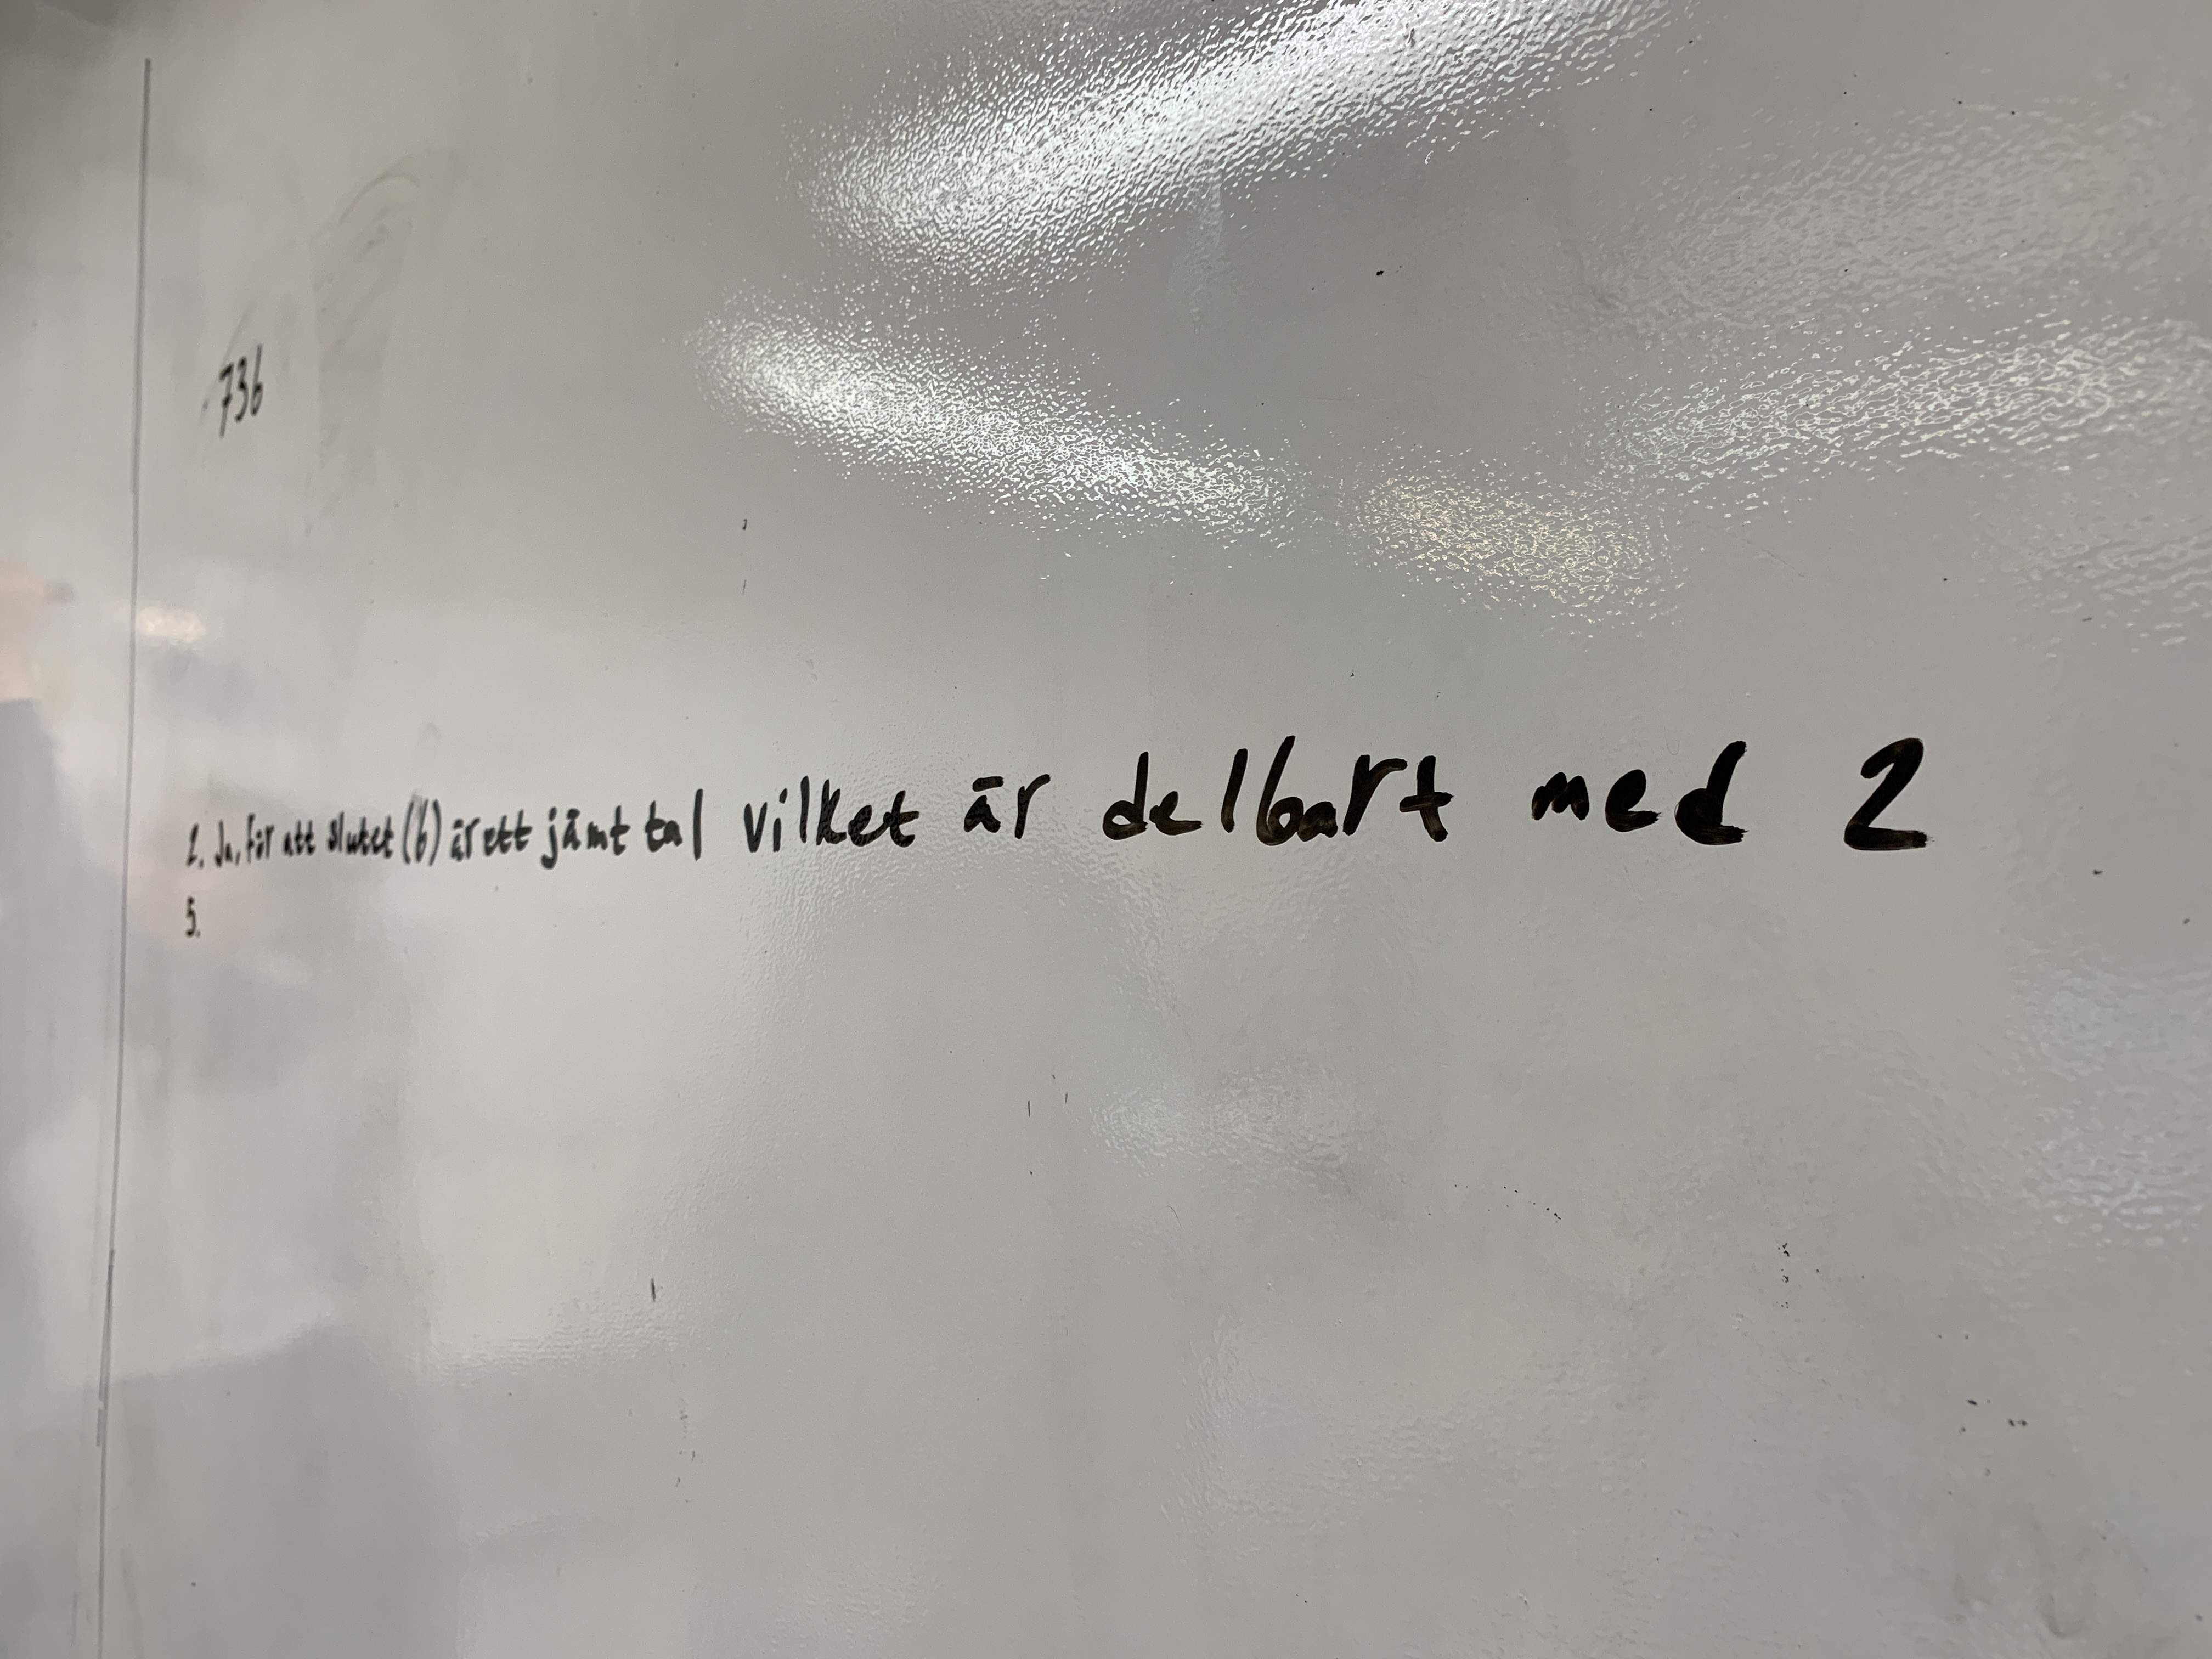 736
2. Ja, För att slutet (6) är ett jämt tal vilket är delbart med 2
5.